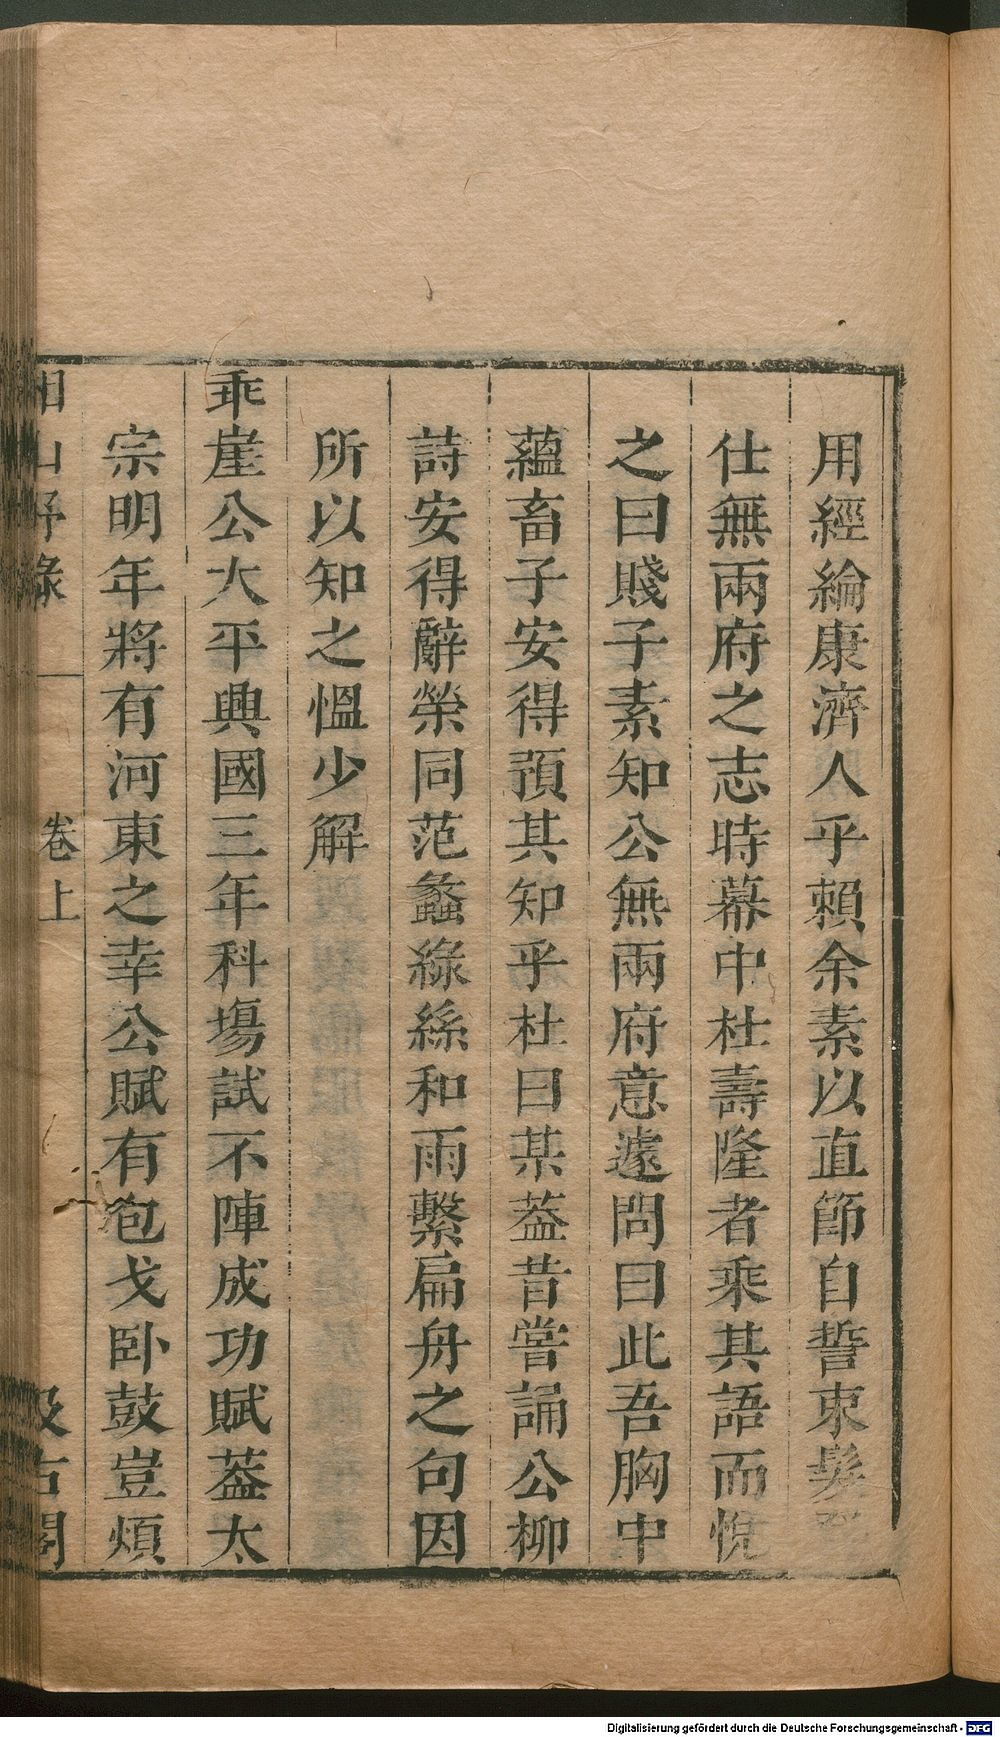 用經綸康濟人乎賴余素以直節自誓束髮
仕無兩府之志時幕中杜壽隆者乘其語而悅
之曰賤子素知公無兩府意遽問曰此吾胸中
蘊畜子安得預其知乎杜曰某葢昔嘗誦公柳
詩安得辭榮同范蠡綠絲和雨繫扁舟之句因
所以知之慍少解
乖崖公太平興國三年科場試不陣成功賦葢太
宗明年將有河東之幸公賦有包戈臥鼓豈煩
湘山野錄 卷上 汲古閣
Digitalisierung gefördert durch die Deutsche Forschungsgemeinschaft - DFG